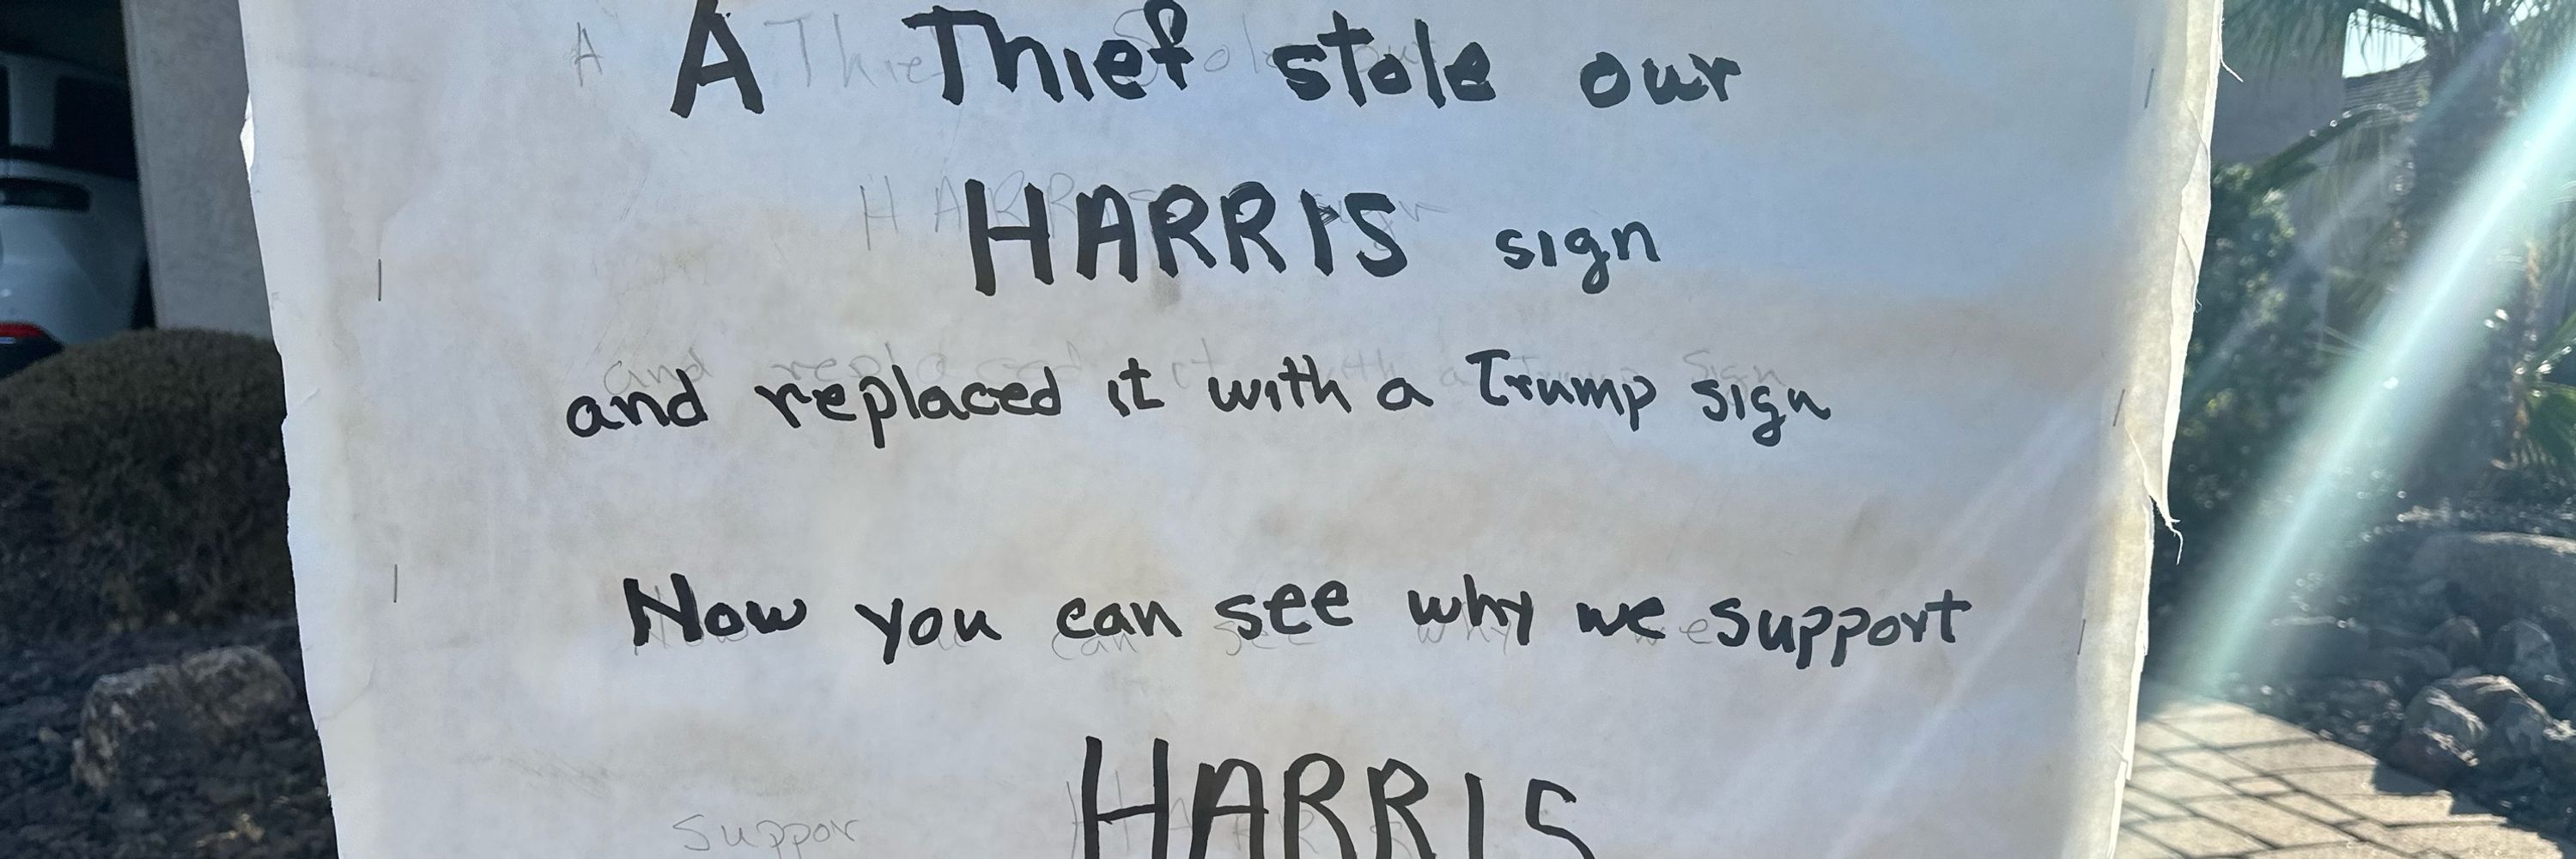 A Thief stole our
HARRIS sign
and replaced it with a Trump sign
Now you can see why we support
HARRIS